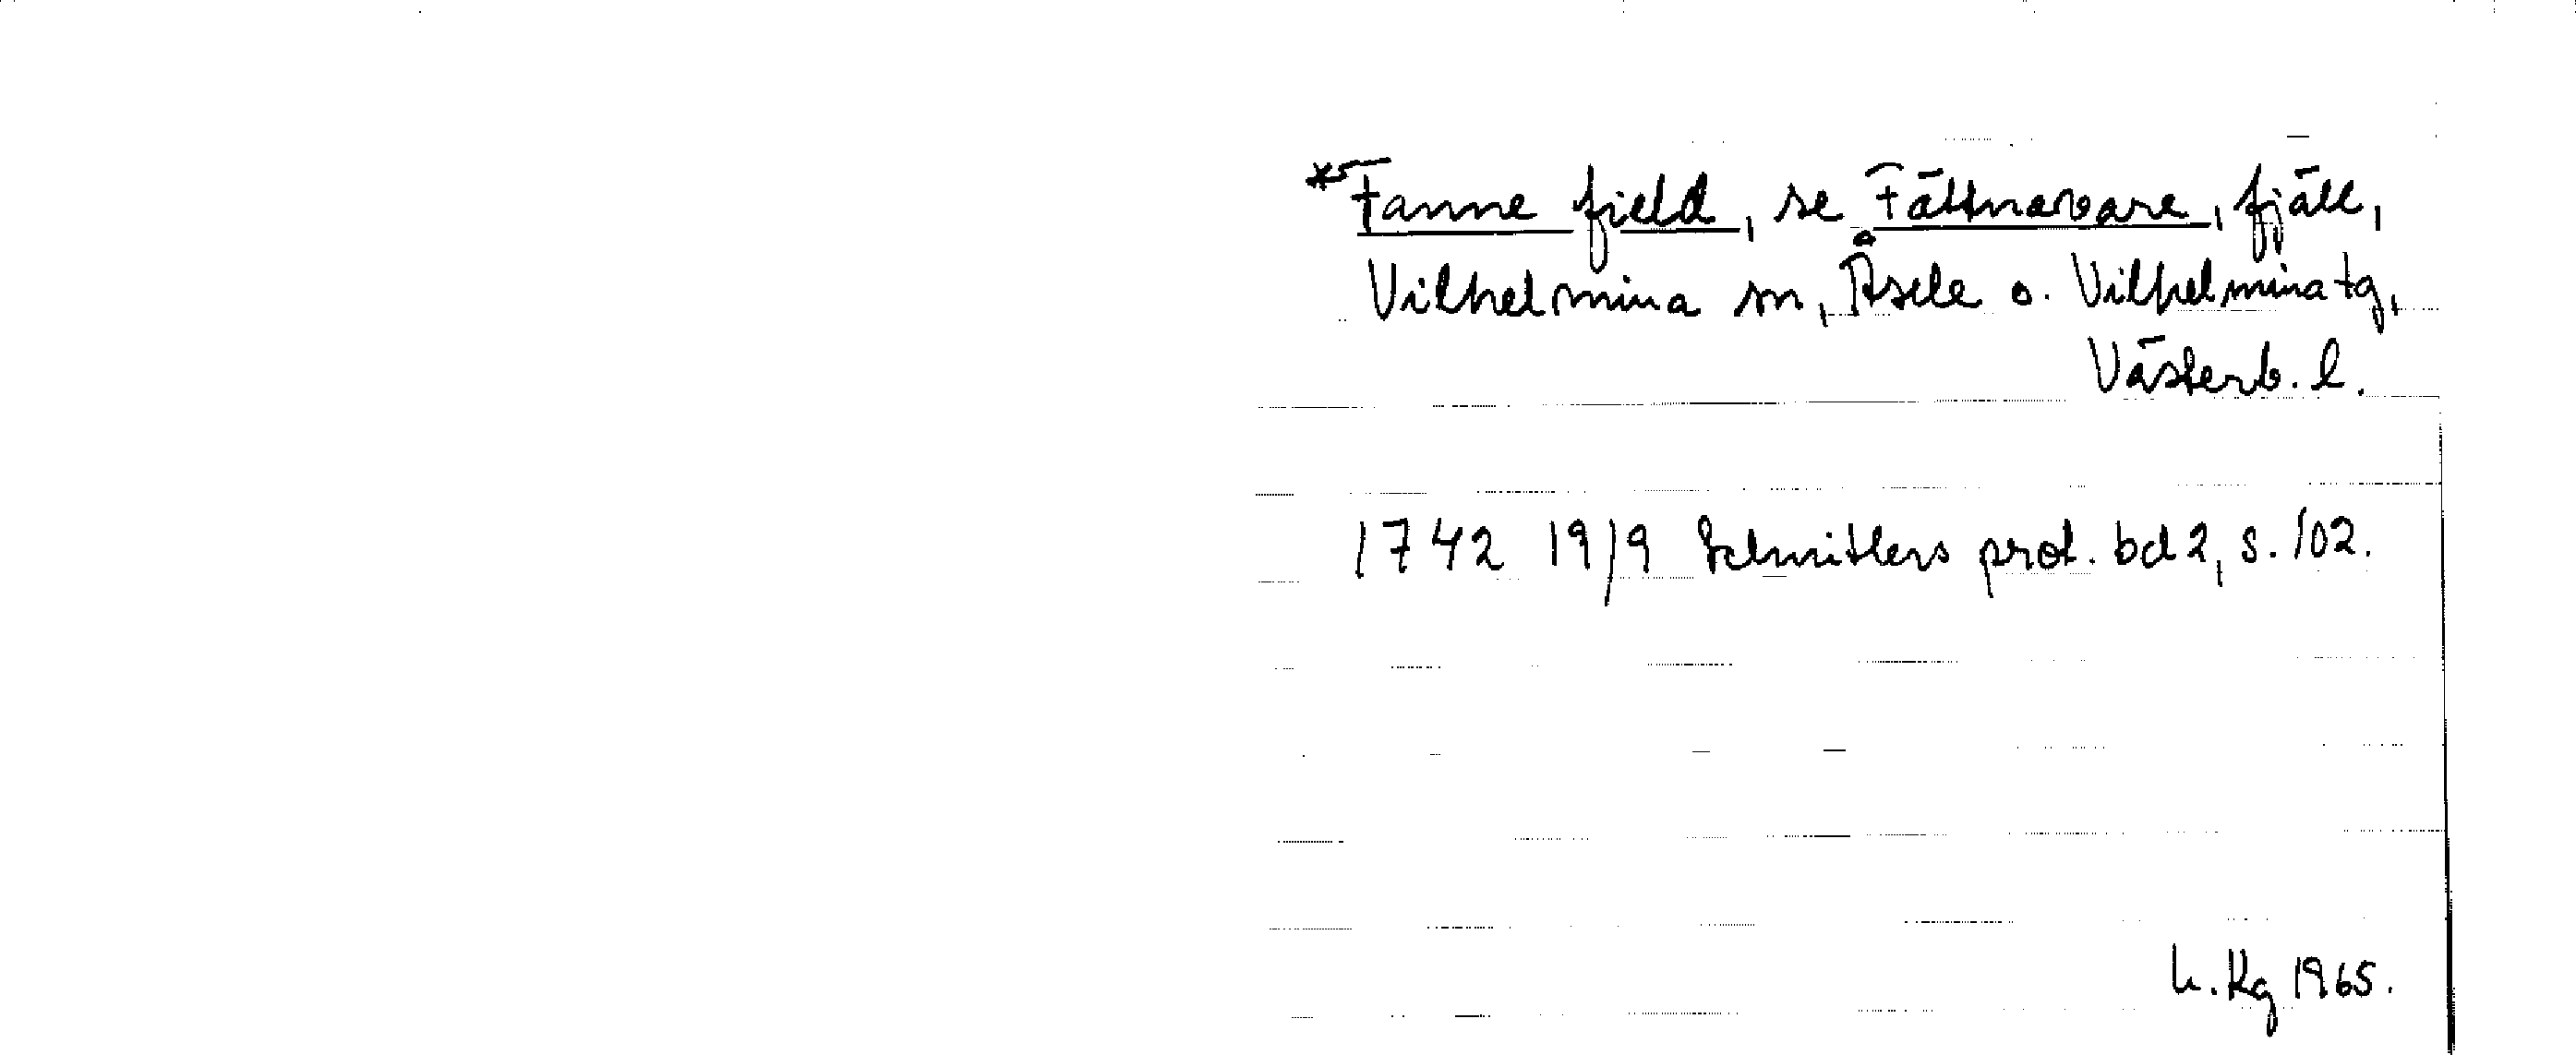 *Fanne field, se Fättnavare, fjäll,
Vilhelmina sn, Åsele o. Vilhelmina tg,
Västerb. l.
1742 19/9 Schnitlers prot. bd 2, s. 102.
h. Kg 1965.